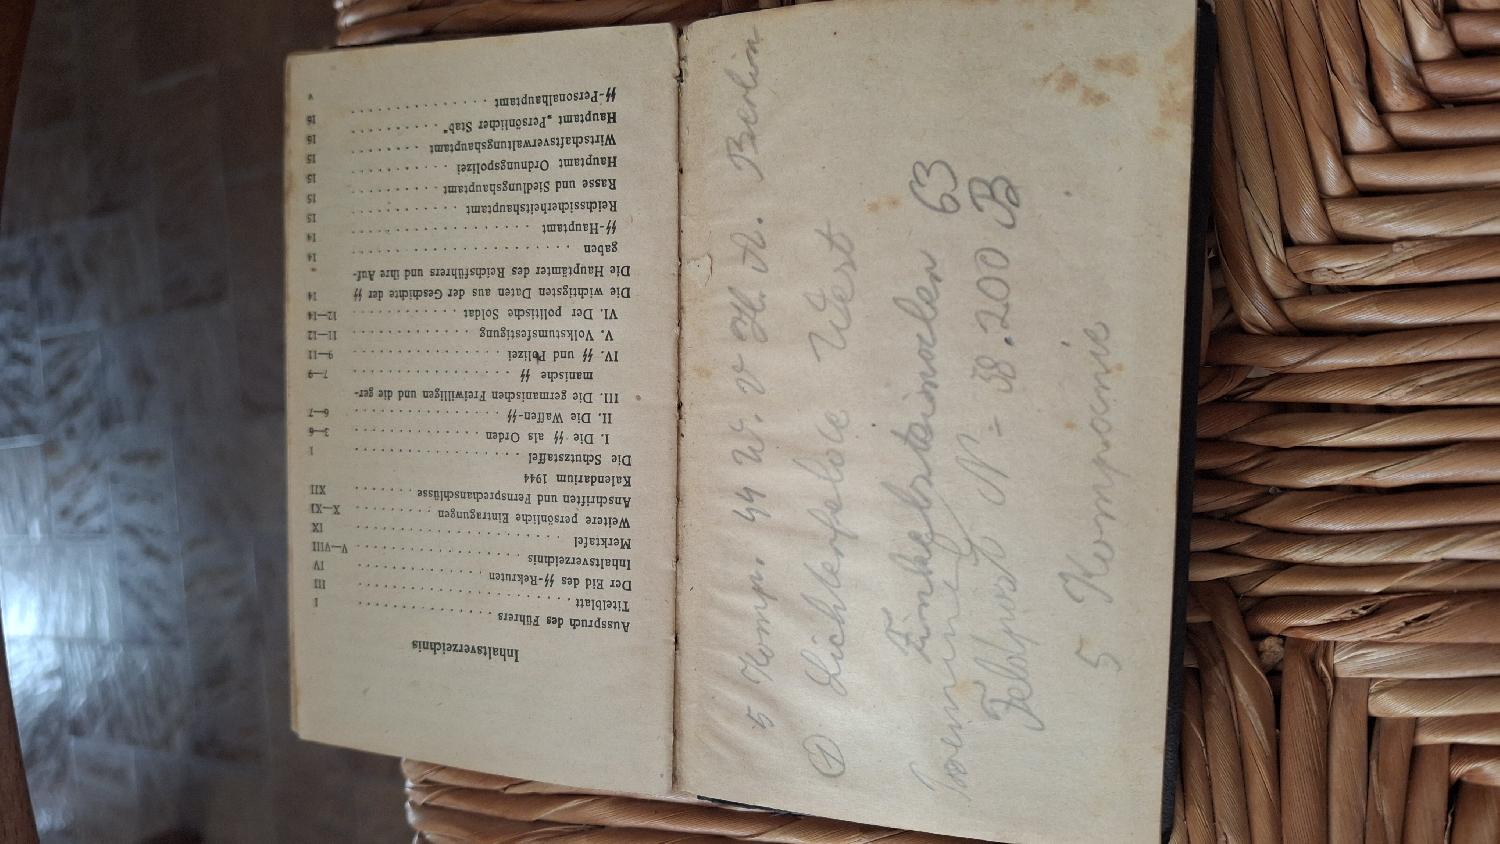 Inhaltsverzeichnis
Ausspruch des Führers . . . . . . . . . . . . . . . I
Titelblatt . . . . . . . . . . . . . . . . . . . . . III
Der Eid des SS-Rekruten . . . . . . . . . . . . IV
Inhaltsverzeichnis . . . . . . . . . . . . . . . V—VIII
Merktafel . . . . . . . . . . . . . . . . . . . . IX
Weitere persönliche Eintragungen . . . . . . . . X—XI
Anschriften und Fernsprechanschlüsse . . . . . . . XII
Kalendarium 1944
Die Schutzstaffel . . . . . . . . . . . . . . . 1
I. Die SS als Orden . . . . . . . . . . . . . 3—6
II. Die Waffen-SS . . . . . . . . . . . . . . 6—7
III. Die germanischen Freiwilligen und die ger-
manische SS . . . . . . . . . . . . . . . 7—9
IV. SS und Polizei . . . . . . . . . . . . . . 9—11
V. Volkstumsfestigung . . . . . . . . . . . . 11—12
VI. Der politische Soldat . . . . . . . . . . . 12—14
Die wichtigsten Daten aus der Geschichte der SS 14
Die Hauptämter des Reichsführers und ihre Auf-
gaben . . . . . . . . . . . . . . . . . . . . 14
SS-Hauptamt . . . . . . . . . . . . . . . . . 14
Reichssicherheitshauptamt . . . . . . . . . . 15
Rasse und Siedlungshauptamt . . . . . . . . . 15
Hauptamt Ordnungspolizei . . . . . . . . . . . 15
Wirtschaftsverwaltungshauptamt . . . . . . . . 16
Hauptamt „Persönlicher Stab“ . . . . . . . . . 16
SS-Personalhauptamt . . . . . . . . . . . . .
5 Komp. SS W. V. H. A. Berlin
Lichterfelde West
63
Feldpost N - 58.200 B
5 Kompanie